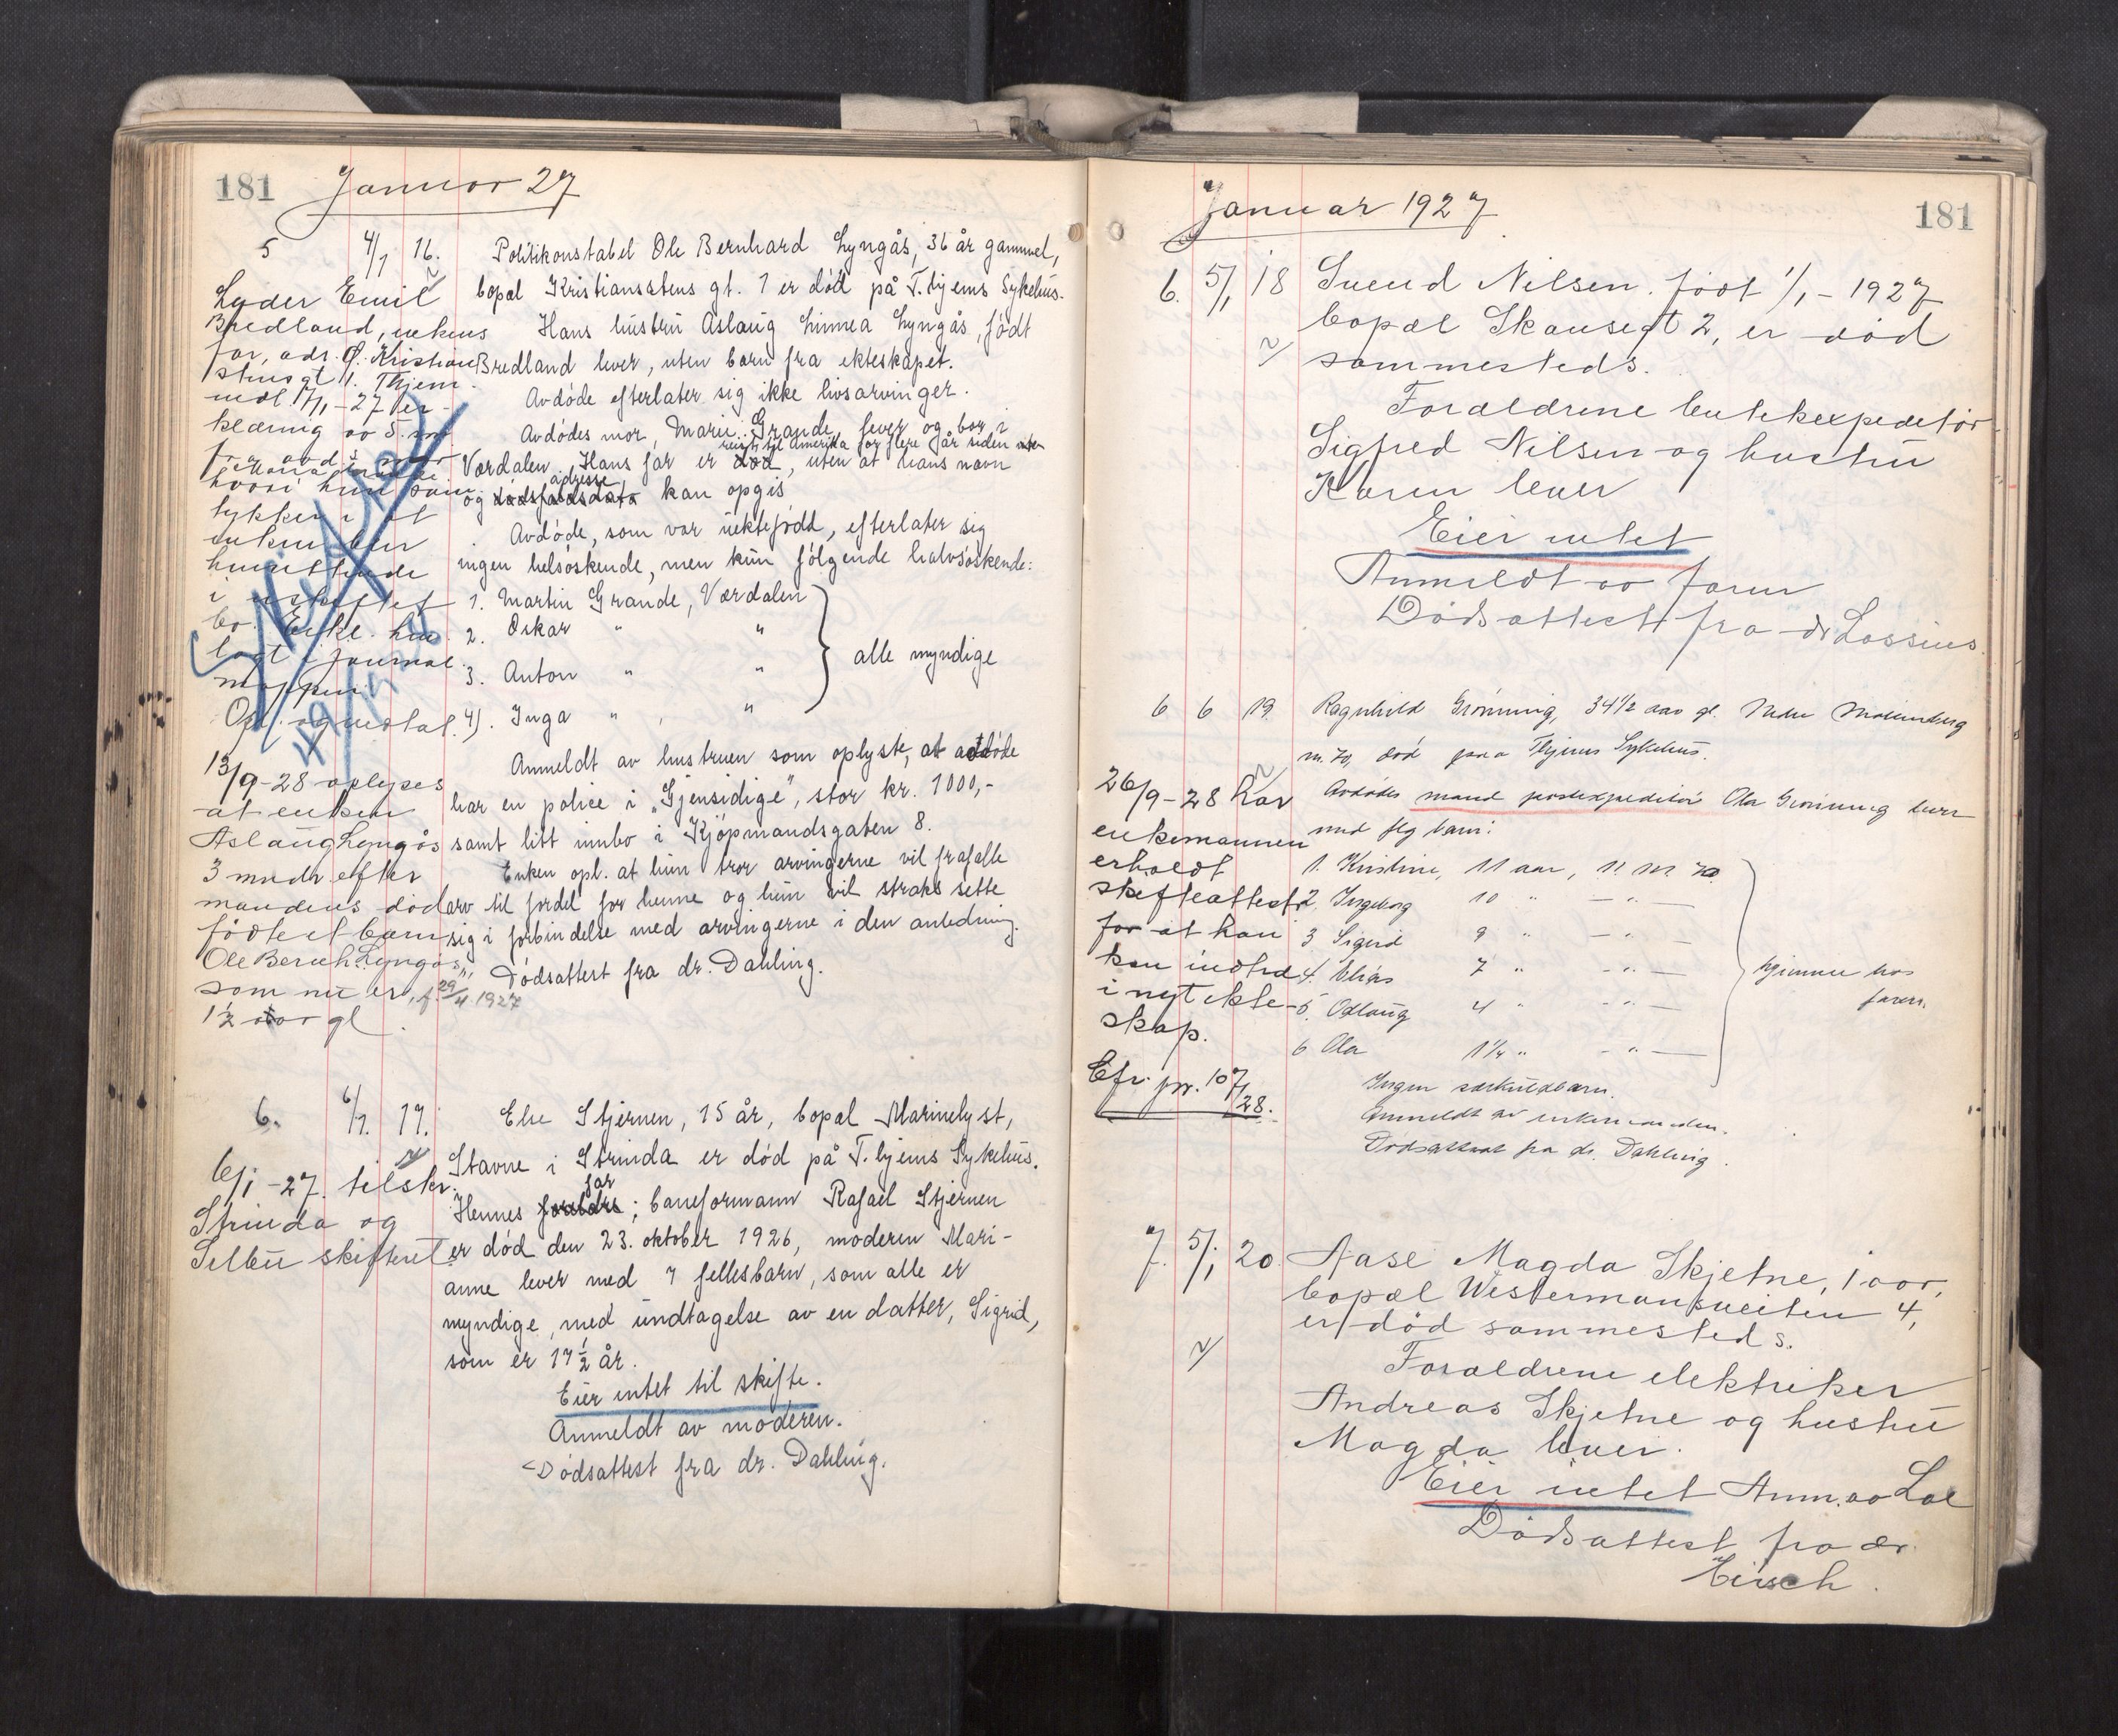 181 Januar 27
5 4/1 16. Politikonstabel Ole Bernhard Lyngås, 36 år gammel,
bopæl Kristianstens gt. 1 er død på T.hjems Sykehus.
Hans hustru Aslaug Linnea Lyngås, født
Bredland lever, uten barn fra ekteskapet.
Avdøde efterlater sig ikke livsarvinger.
Avdødes mor, Marie Grande, lever og bor i
reist til Amerika for flere år siden uten
Værdalen. Hans far er død, uten at hans navn
adresse
og dødsfaldsdato kan opgis
Avdøde, som var uektefødt, efterlater sig
ingen helsøskende, men kun følgende halvsøskende:
1. Martin Grande, Værdalen
2. Oskar " "
3. Anton " "
4). Inga " , "
alle myndige
Anmeldt av hustruen som oplyste, at avdøde
har en police i "Gjensidige", stor kr. 1000,-
samt litt innbo i Kjøpmandsgaten 8.
Enken opl. at hun tror arvingerne vil frafalle
arv til fordel for henne og hun vil straks sette
sig i forbindelse med arvingerne i den anledning.
Dødsattest fra dr. Dahling.
Lyder Emil
Bredland, enkens
far, adr. Ø. Kristian
stensgt 1. Thjem.
medl. 7/1-27 er-
klæring av 5. 
hvori hun sam
tykker i at
enken blir
hensittende
i uskiftet
bo. Erkl. hen
lagt i journal
mappen.
13/9-28 oplyses
at enken
Aslaug Lyngås
3 mndr efter
mandens død
fødte et barn
Ole Bernh. Lyngås,
som nu er, f. 29/4 1927
1½ aar gl.
6. 6/1. 17. Else Stjernen, 15 år, bopæl Marinelyst,
Stavne i Strinda er død på T.hjems Sykehus.
far
Hennes foreldre; baneformann Rafael Stjernen
er død den 23. oktober 1926, moderen Mari-
anne lever med 7 fellesbarn, som alle er
myndige, med undtagelse av en datter, Sigrid,
som er 17½ år.
Eier intet til skifte.
Anmeldt av moderen.
Dødsattest fra dr. Dahling.
6/1-27. tilskr.
Strinda og
Selbu skifteret
Januar 1927 181
6. 5/1 18 Svend Nilsen. født 1/1-1927
bopæl Skansegt 2, er død
sammesteds.
Forældrene butikkexpeditør
Sigfred Nilsen og hustru
Karen lever
Eier intet
Anmeldt av faren
Dødsattest fra dr Lossius.
6 6 19. Ragnhild Grønning, 34½ aar gl. Nedre Møllenberg
nr. 70, død paa T.hjems Sykehus.
Avdødes mand postexpeditør Ola Grønning lever
med flg barn:
1. Kristine, 11 aar, N. M 70.
2. Ingeborg 10 " — " —
3 Sigrid 9 " — " —
4. Elias 7 " — " —
5. Odlaug 4 " — " —
6 Ola 1¼ " — " —
hjemme hos
faren.
Ingen særkuldbarn.
Anmeldt av enkemanden.
Dødsattest fra dr. Dahling.
26/9-28 har
enkemannen
erholdt
skifteattest
for at han
kan indtræ
i nyt ekte-
skap.
Cfr. jnr. 107/28.
7. 5/1 20. Aase Magda Skjetne, 1 aar,
bopæl Westermansveiten 4,
er død sammesteds.
Forældrene elektriker
Andreas Skjetne og hustru
Magda lever.
Eier intet Anm. av
Dødsattest fra dr.